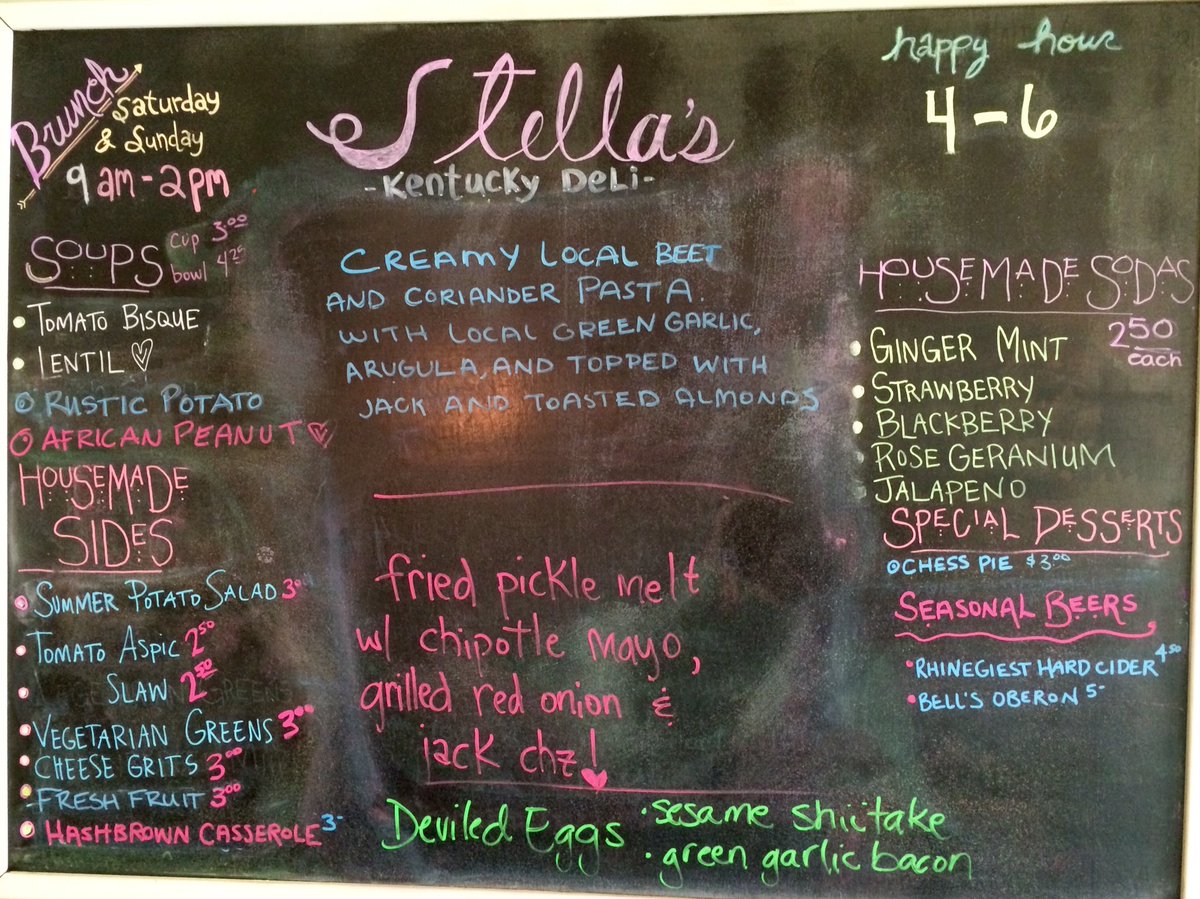 Brunch
Saturday
& Sunday
9am-2pm
SOUPS
cup 3.00
bowl 4.25
• TOMATO BISQUE
• LENTIL
RUSTIC POTATO
AFRICAN PEANUT
HOUSEMADE
SIDES
• SUMMER POTATO SALAD 3
• TOMATO ASPIC 2.50
• SLAW 2.50
• VEGETARIAN GREENS 3.00
• CHEESE GRITS 3.00
• FRESH FRUIT 3.00
• HASHBROWN CASSEROLE 3-
Stella's
-KENTUCKY DELI-
CREAMY LOCAL BEET
AND CORIANDER PASTA.
WITH LOCAL GREEN GARLIC,
ARUGULA, AND TOPPED WITH
JACK AND TOASTED ALMONDS
fried pickle melt
w/ chipotle mayo,
grilled red onion &
jack chz!
Deviled Eggs
• sesame shiitake
• green garlic bacon
happy hour
4-6
HOUSEMADE SODAS
2.50
each
• GINGER MINT
• STRAWBERRY
• BLACKBERRY
• ROSE GERANIUM
• JALAPENO
SPECIAL DESSERTS
CHESS PIE $3.00
SEASONAL BEERS
• RHINEGIEST HARD CIDER 4.50
• BELL'S OBERON 5-